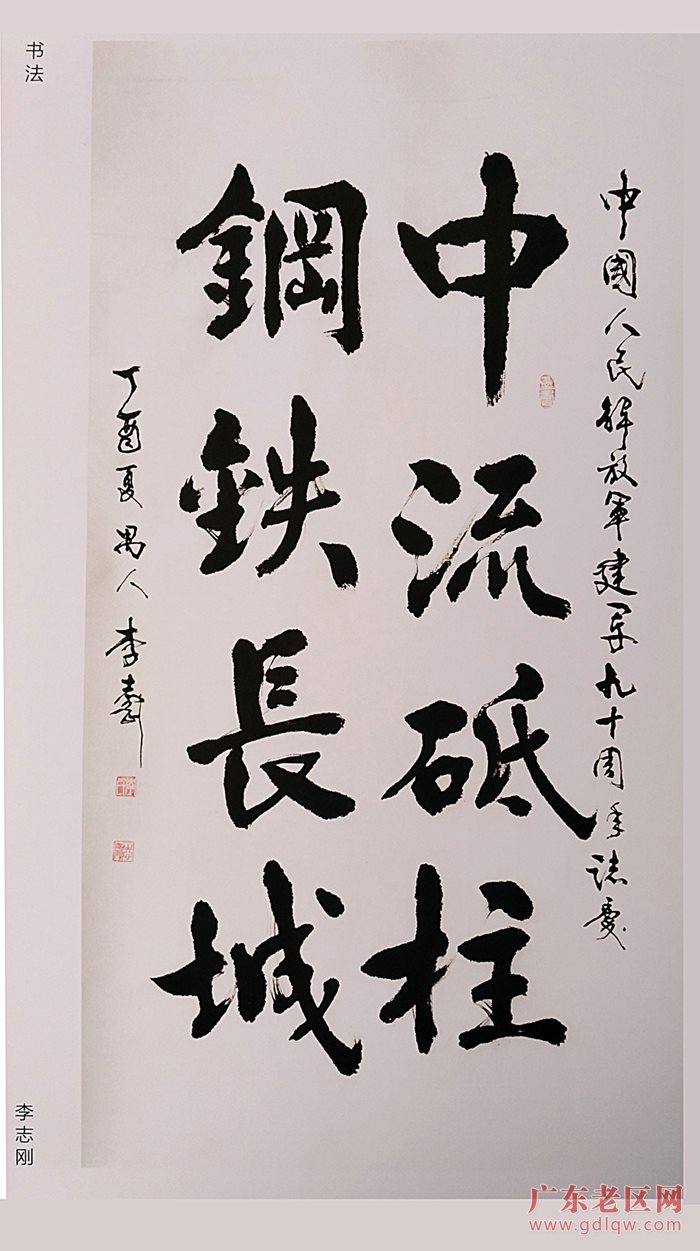 书法
中國人民解放軍建军九十周年誌慶
中流砥柱
鋼鉄長城
丁酉夏禺人李志刚
李志刚
广东老区网
www.gdlqw.com